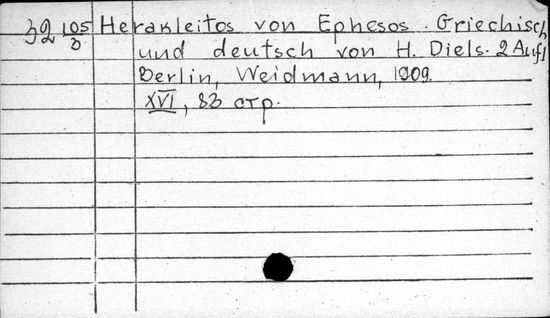 32 105/3 Herakleitos von Ephesos. Griechisch
und deutsch von H. Diels. 2 Aufl
Berlin, Weidmann, 1909.
XVI, 83 стр.